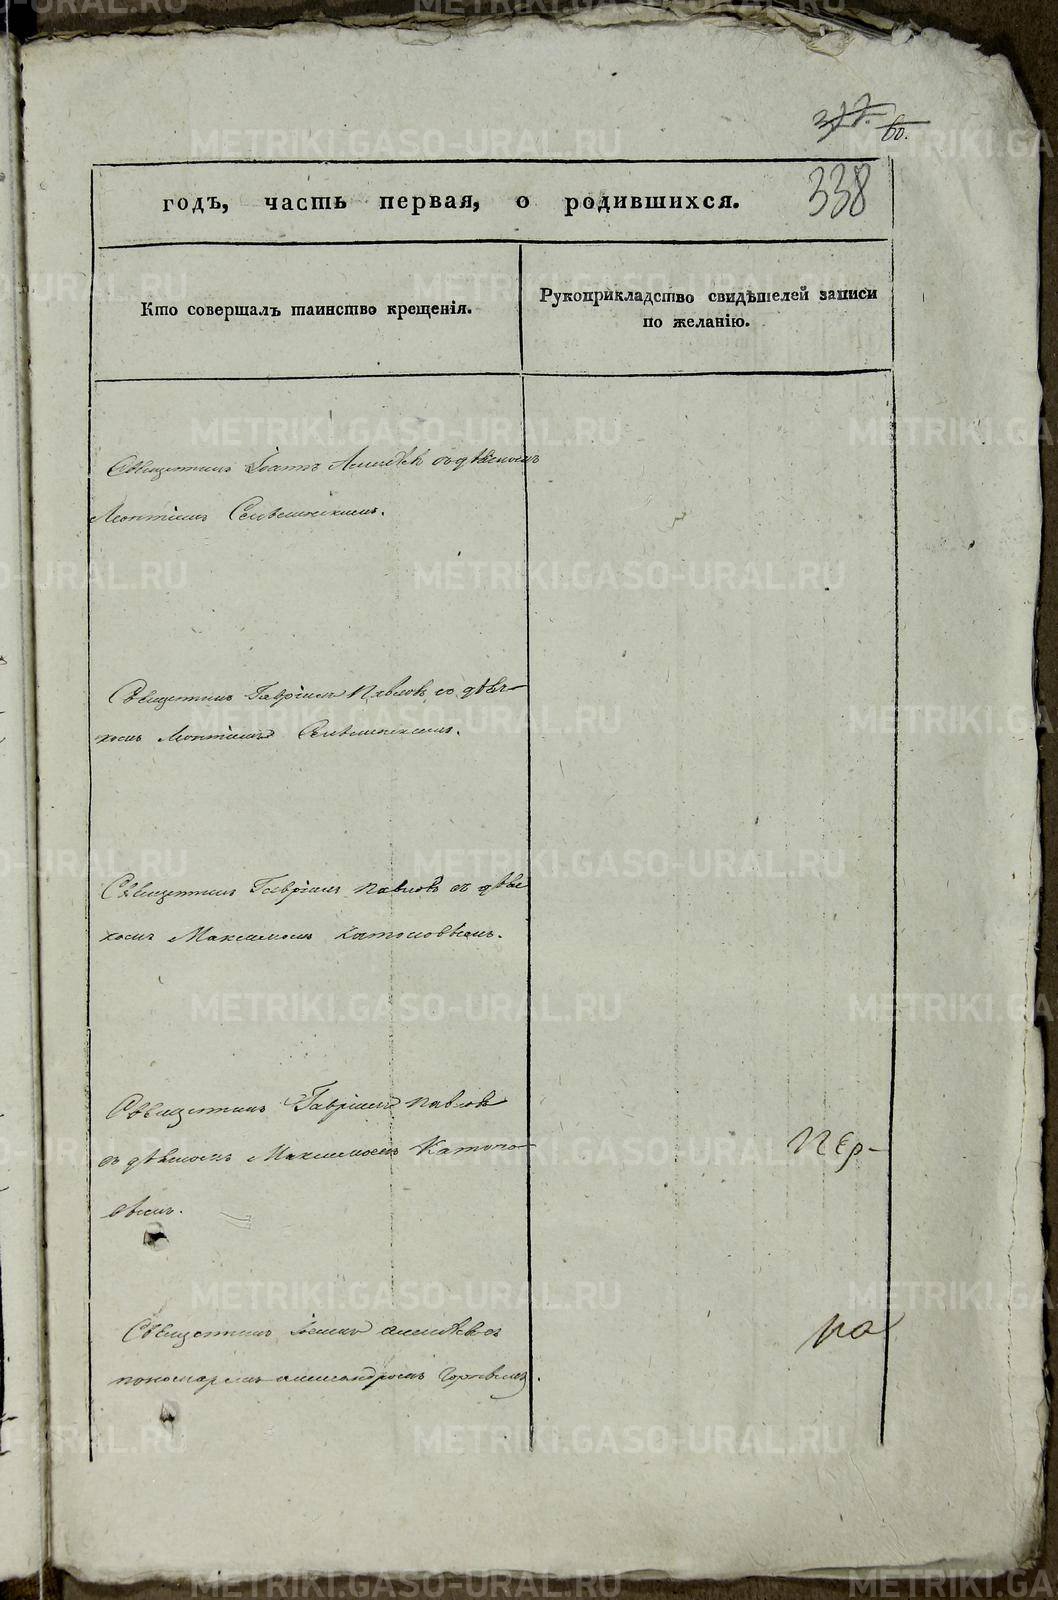 377.
60.
338
годъ, часть первая, о родившихся.
Кто совершалъ таинство крещенія.
Рукоприкладство свидѣтелей записи
по желанію.
Священникъ Іоаннъ съ дьячкомъ
Леонтіемъ
Священникъ Гавріилъ Павловъ со дьяч-
комъ Леонтіемъ
Священникъ Гавріилъ Павловъ съ дьяч
комъ Максимомъ
Священникъ Гавріилъ Павловъ
съ дьячкомъ Максимомъ
Пер-
Священникъ Іоаннъ съ
пономаремъ александромъ
на
METRIKI.GASO-URAL.RU